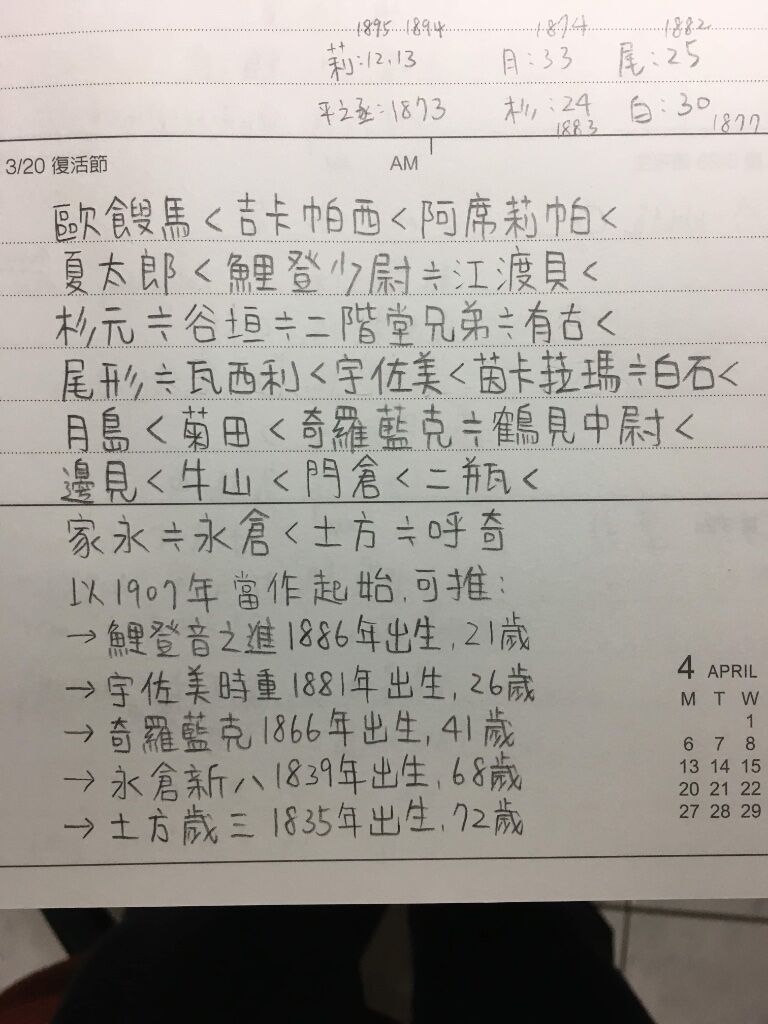 1895 1894 1874 1882
莉:12,13 月:33 尾:25
平之丞:1873 杉:24 白:30
1883 1877
3/20 復活節 AM
歐餿馬<吉卡帕西<阿席莉帕<
夏太郎<鯉登少尉≒江渡貝<
杉元≒谷垣≒二階堂兄弟≒有古<
尾形≒瓦西利<宇佐美<茵卡菈瑪≒白石<
月島<菊田<奇羅藍克≒鶴見中尉<
邊見<牛山<門倉<二瓶<
家永≒永倉<土方≒呼奇
以1907年當作起始,可推:
→鯉登音之進1886年出生,21歲
→宇佐美時重1881年出生,26歲
→奇羅藍克1866年出生,41歲
→永倉新八1839年出生,68歲
→土方歲三1835年出生,72歲
4 APRIL
M T W
1
6 7 8
13 14 15
20 21 22
27 28 29